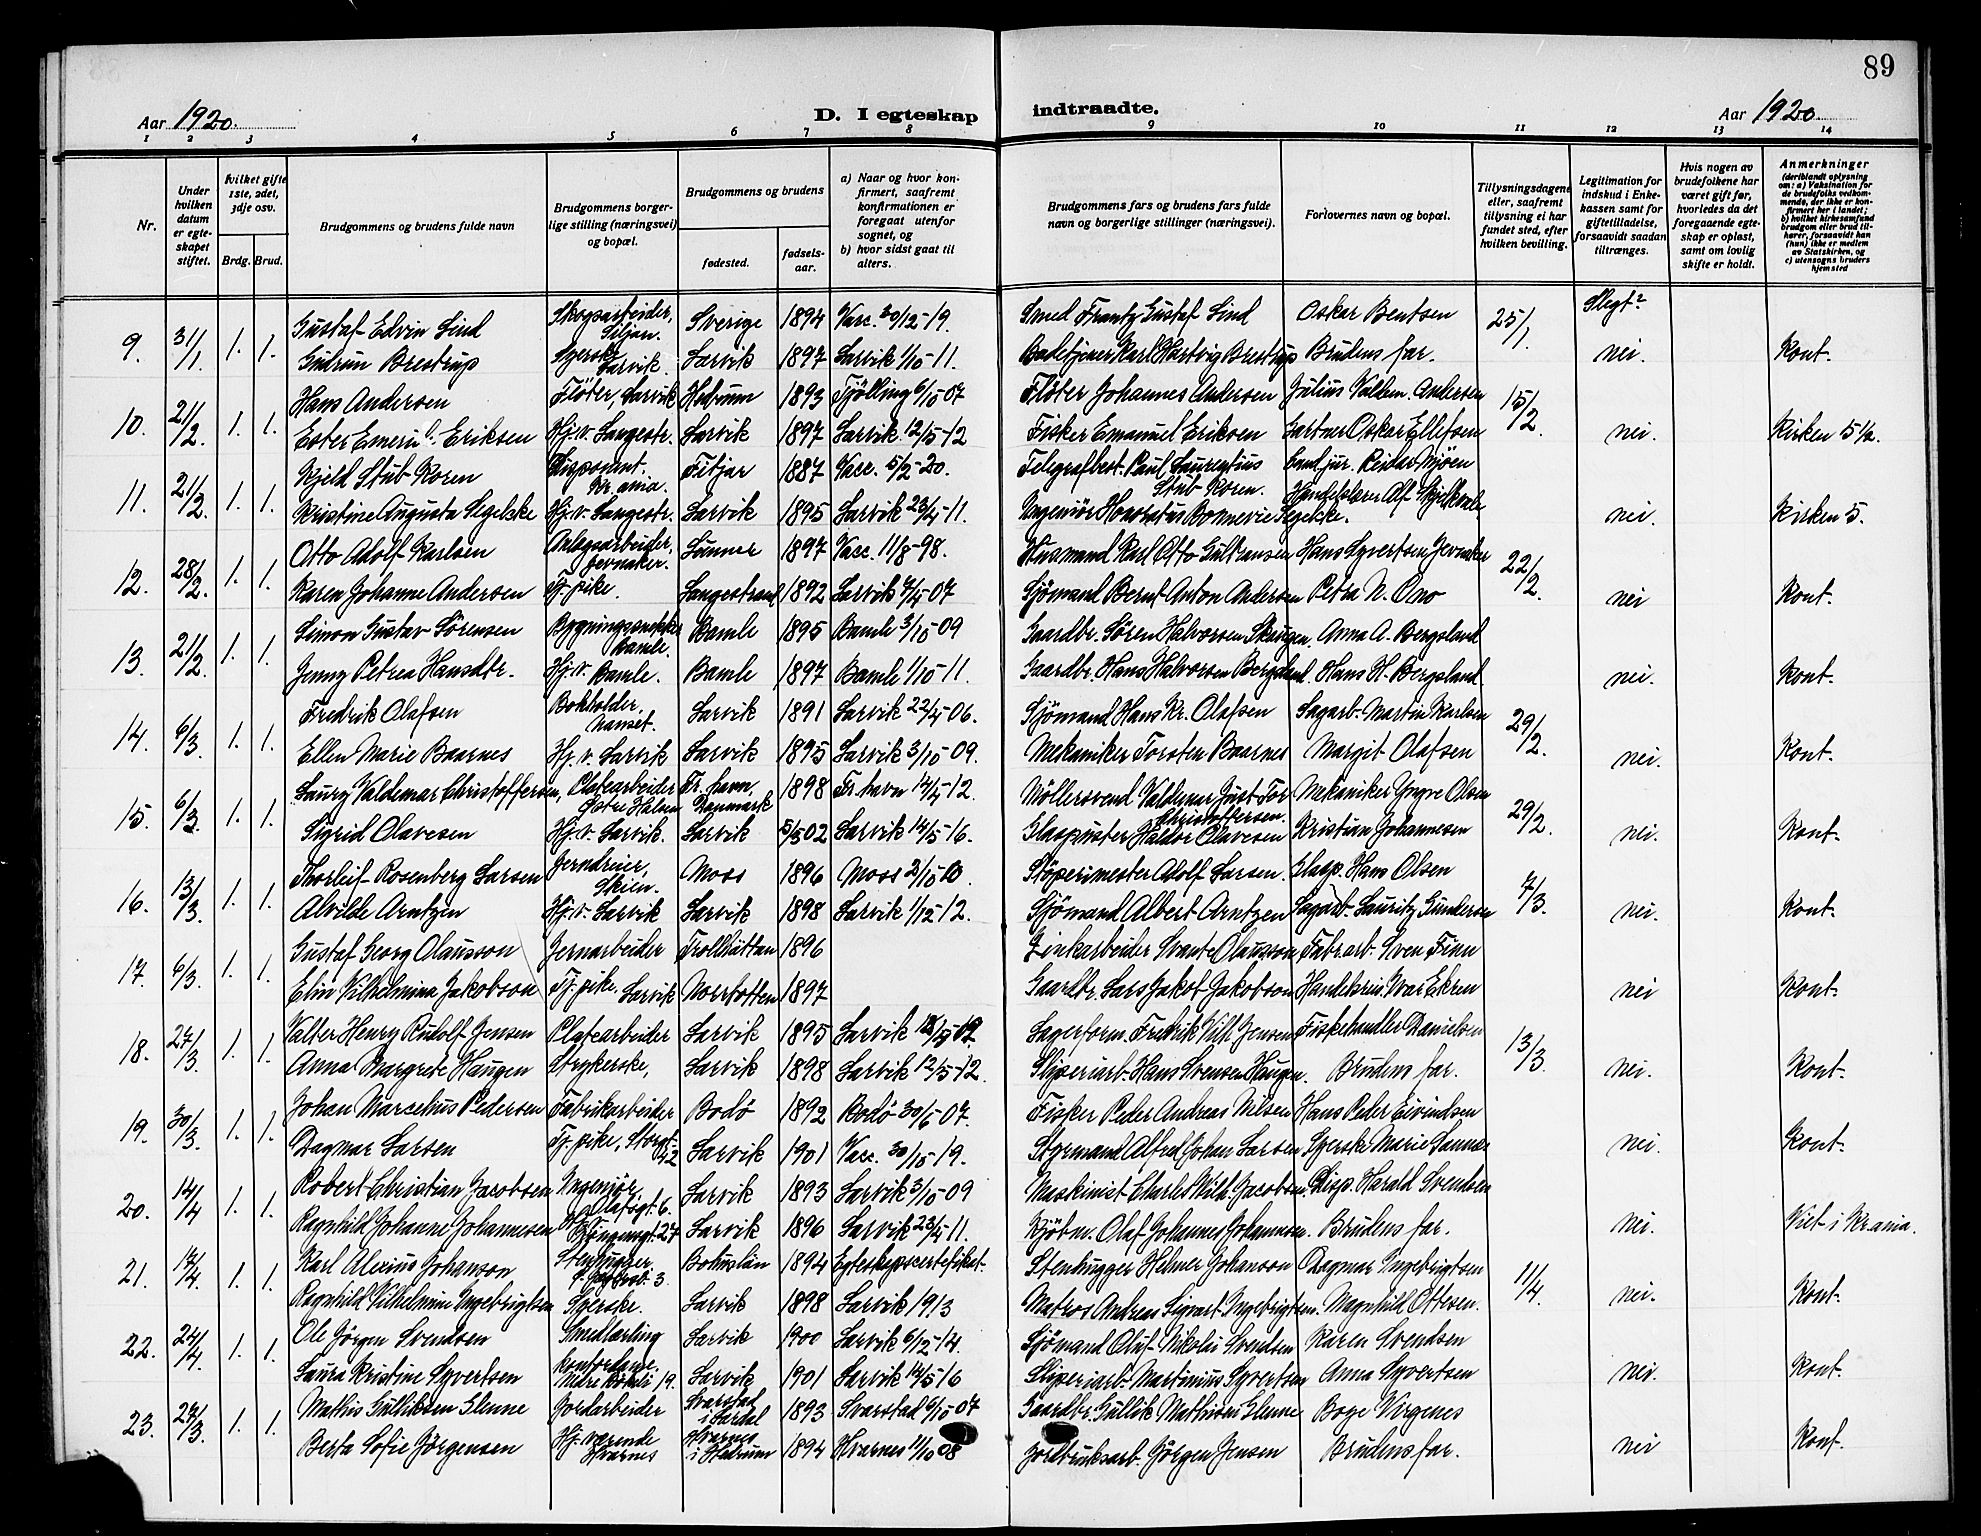 89
Aar 1920.
D. I egteskap indtraadte.
Aar 1920.
1 2 3 4 5 6 7 8 9 10 11 12 13 14
Nr.
Under hvilken datum er egteskapet stiftet.
hvilket gifte 1ste, 2det, 3dje osv.
Brdg. Brud.
Brudgommens og brudens fulde navn
Brudgommens borgerlige stilling (næringsvei) og bopæl.
Brudgommens og brudens
fødested.
fødselsaar.
a) Naar og hvor konfirmert, saafremt konfirmationen er foregaat utenfor sognet, og
b) hvor sidst gaat til alters.
Brudgommens fars og brudens fars fulde navn og borgerlige stillinger (næringsvei).
Forlovernes navn og bopæl.
Tillysningsdagene eller, saafremt tillysning ei har fundet sted, efter hvilken bevilling.
Legitimation for indskud i Enkekassen samt for giftetilladelse, forsaavidt saadan tiltrænges.
Hvis nogen av brudefolkene har været gift før, hvorledes da det foregaaende egteskap er opløst, samt om lovlig skifte er holdt.
Anmerkninger
(deriblandt oplysning om: a) Vaksination for de brudefolks vedkommende, der ikke er konfirmert her i landet; b) hvilket kirkesamfund brudgom eller brud tilhører, forsaavidt han (hun) ikke er medlem av Statskirken, og c) utensogns bruders hjemsted
9. 31/1 1. 1. Gustaf Edvin Lind Skogsarbeider, Siljan. Sverige 1894 Vacc. 30/12-19. Smed Frantz Gustaf Lind Oskar Bentsen 25/1. Slegt?
Gudrun Brestrup Syerske Larvik. Larvik 1897 Larvik 1/10-11. Badetjener Karl Hartvig Brestrup Brudens far. nei. Kont.
10. 21/2. 1. 1. Hans Andersen Fløter, Larvik Hedrum 1893 Tjølling 6/10-07 Fløter Johannes Andersen Julius Valdem. Andersen 15/2.
Ester Eriksen Hj. v. Langestr. Larvik 1897 Larvik 12/5-12 Fisker Emanuel Eriksen Gartner Oskar Ellefsen nei. Kirken 5 1/2.
11. 21/2. 1. 1. Kjeld Stub Koren Disponent. Kr.ania. Fitjar 1887 Vacc. 5/2-20. Telegrafbest. Paul Stub Koren. Cand. jur. Reidar Mjøen
Kristine Augusta Segelcke Hj. v. Langestr. Larvik 1895 Larvik 23/4-11. Ingeniør Bonnevie Segelcke. Alf nei. Kirken 5.
12. 28/2. 1. 1. Otto Adolf Karlsen Anlegsarbeider, Jevnaker. Lunner 1897 Vacc. 11/8-98. Husmand Karl Otto Gulbransen Hans Syvertsen Jevnaker 22/2.
Karen Johanne Andersen Tj. pike. Langestrand 1892 Larvik 7/4-07 Sjömand Bernt Anton Andersen Petra N. Ono nei Kont.
13. 21/2. 1. 1. Simon Gustav Sörensen Bygningssnekker Bamle. Bamle 1895 Bamle 3/10-09 Gaardbr. Sören Halvorsen Skaugen. Anna A. Bergsland
Jenny Petrea Hansdtr. Hj. v. Bamle. Bamle 1897 Bamle 1/10-11. Gaardbr. Hans Halvorsen Bergsland. Hans H. Bergsland nei. Kont.
14. 6/3. 1. 1. Fredrik Olafsen Bokholder, Nanset. Larvik 1891 Larvik 22/4-06. Sjömand Hans Kr. Olafsen Sagarb. Martin Karlsen 29/2.
Ellen Marie Baarnes Hj. v. Larvik Larvik 1895 Larvik 3/10-09. Mekaniker Torsten Baarnes Margit Olafsen nei. Kont.
15. 6/3. 1. 1. Laury Valdemar Christoffersen, Platearbeider Østre Halsen Fr. havn, Danmark 1898 Fr. havn 14/4-12. Möllersvend Valdemar Just Tor Christoffersen. Mekaniker Yngve Olsen 29/2.
Sigrid Olavesen Hj. v. Larvik. Larvik 5/5 02 Larvik 14/5-16. Glaspuster Haldor Olavesen Kristian Johannesen nei. Kont.
16. 13/3. 1. 1. Thorleif Rosenberg Larsen Jerndreier, Skien. Moss 1896 Moss 2/10-10. Støperimester Adolf Larsen. Glasp. Hans Olsen 7/3.
Alvilde Arntzen Hj. v. Larvik Larvik 1898 Larvik 1/12-12. Sjömand Albert Arntzen Sagarb. Lauritz Gundersen nei. Kont.
17. 6/3. 1. 1. Gustaf Georg Olausson Jernarbeider Trollhättan 1896 Zinkarbeider Svante Olausson Fabr.arb. Sven Finn
Elin Vilhelmina Jakobson Tj. pike. Larvik 1897 Gaardbr. Lars Jakob Jakobson Ivar Ekren nei Kont.
18. 27/3. 1. 1. Valter Henry Rudolf Jensen Platearbeider Larvik 1895 Larvik Lagerform. Fredrik Vilh. Jensen Fiskehandler Danielsen 13/3.
Anna Margrete Haugen Strykerske, Larvik 1898 Larvik 12/5-12. Sliperiarb. Hans Svensen Haugen. Brudens far. nei. Kont.
19. 30/3. 1. 1. Johan Marcelius Pedersen Fabrikarbeider Bodö 1892 Bodö 30/6-07. Fisker Peder Andreas Nilsen Hans Peder Eivindsen
Dagmar Larsen Tj. pike, Storgt. 42 Larvik 1901 Vacc. 30/10-19. Styrmand Alfred Johan Larsen Syerske Marie nei. Kont.
20. 14/4 1. 1. Robert Christian Jacobsen Ingeniør, Olafsgt. 6. Larvik 1893 Larvik 3/10-09 Maskinist Charles Wilh. Jacobsen. Disp. Harald Svendsen
Ragnhild Johanne Johannesen Kongensgt. 27 Larvik 1896 Larvik 23/4-11. Kjöbm. Olaf Johannes Johannesen. Brudens far. nei. Viet i Kr.ania.
21. 14/4. 1. 1. Karl Alexius Johanson Stenhugger, 3. Bohuslän 1894 Egteskapscertefikat. Stenhugger Helmer Johanson Dagmar Ingebrigtsen 11/4.
Ragnhild Vilhelmine Ingebrigtsen Syerske. Larvik 1898 Larvik 1913 Matros Andreas Sigvart Ingebrigtsen. Magnhild Ottesen. nei. Kont.
22. 24/4. 1. 1. Ole Jörgen Svendsen Smedlærling Larvik 1900 Larvik 6/12-14. Sjömand Oluf Nikolai Svendsen Karen Svendsen
Laura Kristine Syvertsen Kontordame. 19. Larvik 1901 Larvik 14/5-16 Sliperiarb. Martinius Syvertsen Anna Syvertsen nei. Kont.
23. 27/3. 1. 1. Mathis Gulliksen Glenne Jordarbeider Svarstad i Lardal 1893 Svarstad 6/10-07 Gaardbr. Gullik Mathisen Glenne Boye Virgenes
Berta Sofie Jörgensen Hj. værende Hvarnes Hvarnes i Hedrum 1894 Hvarnes 11/10 08 Jordbruksarb. Jörgen Jensen Brudens far. nei Kont.